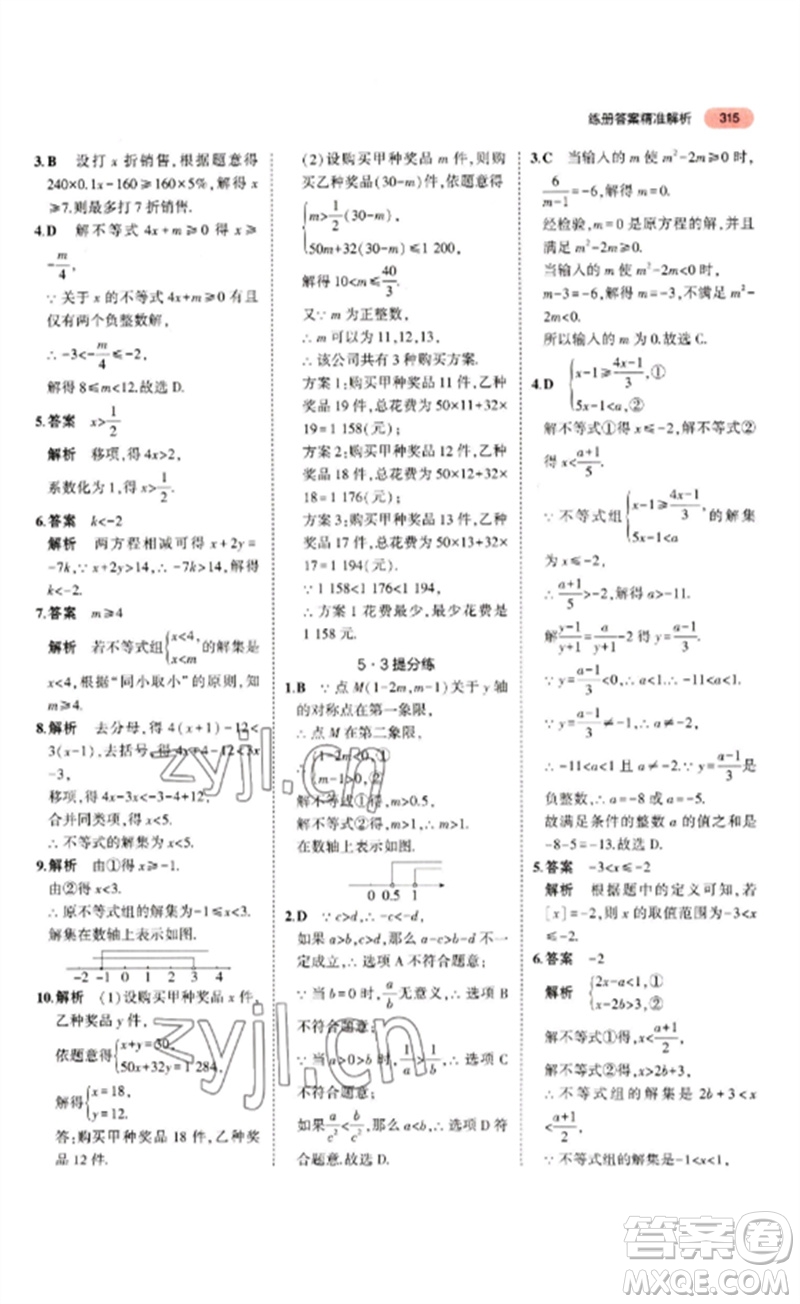 练册答案精准解析 315
3.B 设打 x 折销售,根据题意得
240×0.1x-160≥160×5%,解得 x
≥7.则最多打 7 折销售.
4.D 解不等式 4x+m≥0 得 x≥
-m/4,
∵ 关于 x 的不等式 4x+m≥0 有且
仅有两个负整数解,
∴ -3<-m/4≤-2,
解得 8≤m<12.故选 D.
5.答案 x>1/2
解析 移项,得 4x>2,
系数化为 1,得 x>1/2.
6.答案 k<-2
解析 两方程相减可得 x+2y=
-7k,∵ x+2y>14,∴ -7k>14,解得
k<-2.
7.答案 m≥4
解析 若不等式组{x<4, x<m 的解集是
x<4,根据“同小取小”的原则,知
m≥4.
8.解析 去分母,得 4(x+1)-12<
3(x-1),去括号,得 4x+4-12<3x
-3,
移项,得 4x-3x<-3-4+12,
合并同类项,得 x<5.
∴ 不等式的解集为 x<5.
9.解析 由①得 x≥-1.
由②得 x<3.
∴ 原不等式组的解集为-1≤x<3.
解集在数轴上表示如图.
-2 -1 0 1 2 3 4
10.解析 (1)设购买甲种奖品 x 件,
乙种奖品 y 件,
依题意得{x+y=30, 50x+32y=1 284,
解得{x=18, y=12.
答:购买甲种奖品 18 件,乙种奖
品 12 件.
(2)设购买甲种奖品 m 件,则购
买乙种奖品(30-m)件,依题意得
{m>1/2(30-m),
50m+32(30-m)≤1 200,
解得 10<m≤40/3.
又∵ m 为正整数,
∴ m 可以为 11,12,13,
∴ 该公司共有 3 种购买方案.
方案 1:购买甲种奖品 11 件,乙种
奖品 19 件,总花费为 50×11+32×
19=1 158(元);
方案 2:购买甲种奖品 12 件,乙种
奖品 18 件,总花费为 50×12+32×
18=1 176(元);
方案 3:购买甲种奖品 13 件,乙种
奖品 17 件,总花费为 50×13+32×
17=1 194(元).
∵ 1 158<1 176<1 194,
∴ 方案 1 花费最少,最少花费为
1 158 元.
5·3提分练
1.B ∵ 点 M(1-2m,m-1)关于 y 轴
的对称点在第一象限,
∴ 点 M 在第二象限,
∴ {1-2m<0,① m-1>0,②
解不等式①得 m>0.5,
解不等式②得 m>1,∴ m>1.
在数轴上表示如图.
0 0.5 1
2.D ∵ c>d,∴ -c<-d,
如果 a>b,c>d,那么 a-c>b-d 不一
定成立,∴ 选项 A 不符合题意;
∵ 当 b=0 时,a/b无意义,∴ 选项 B
不符合题意;
∵ 当 a>0>b 时,1/a>1/b,∴ 选项 C
不符合题意;
∵ 如果a/c²<b/c²,那么 a<b,∴ 选项 D 符
合题意.故选 D.
3.C 当输入的 m 使 m²-2m≥0 时,
6/(m-1)=-6,解得 m=0.
经检验,m=0 是原方程的解,并且
满足 m²-2m≥0,
当输入的 m 使 m²-2m<0 时,
m-3=-6,解得 m=-3,不满足 m²-
2m<0,
所以输入的 m 为 0.故选 C.
4.D {x-1≥(4x-1)/3,① 5x-1<a,②
解不等式①得 x≤-2,解不等式②
得 x<(a+1)/5.
∵ 不等式组{x-1≥(4x-1)/3, 5x-1<a 的解集
为 x≤-2,
∴ (a+1)/5>-2,∴ a>-11.
解(y-1)/(y+1)=a/(y+1)-2 得 y=(a-1)/3.
∵ y=(a-1)/3<0 且 y≠-1,
∴ a<1 且 a≠-2,
∴ -11<a<1 且 a≠-2.∵ y=(a-1)/3是
负整数,∴ a=-8 或 a=-5.
故满足条件的整数 a 的值之和是
-8-5=-13.故选 D.
5.答案 -3<x≤-2
解析 根据题中的定义可知,若
[x]=-2,则 x 的取值范围为-3<x
≤-2.
6.答案 -2
解析 {2x-a<1,① x-2b>3,②
解不等式①得,x<(a+1)/2,
解不等式②得,x>2b+3,
∴ 不等式组的解集是 2b+3<x
<(a+1)/2,
∵ 不等式组的解集是-1<x<1,
zyjl.cn
zyjl.cn
答案圈
MXQE.COM